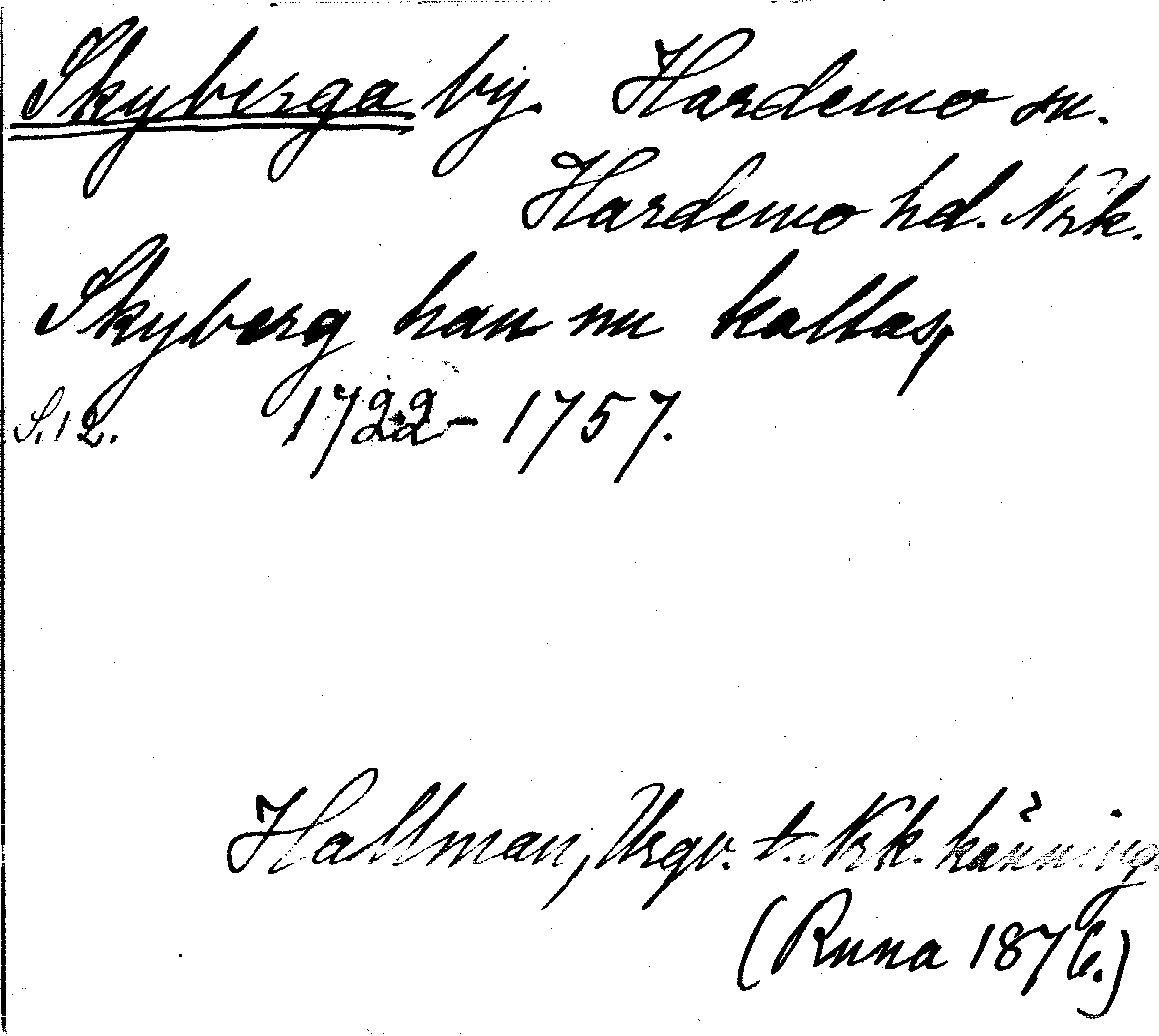 Skyberga by. Hardemo sn.
Hardemo hd. Nrk.
Skyberg han nu kallas,
S. 12. 1722 - 1757.
Hallman, Utgv. t. Nrk. känning.
(Runa 1876.)